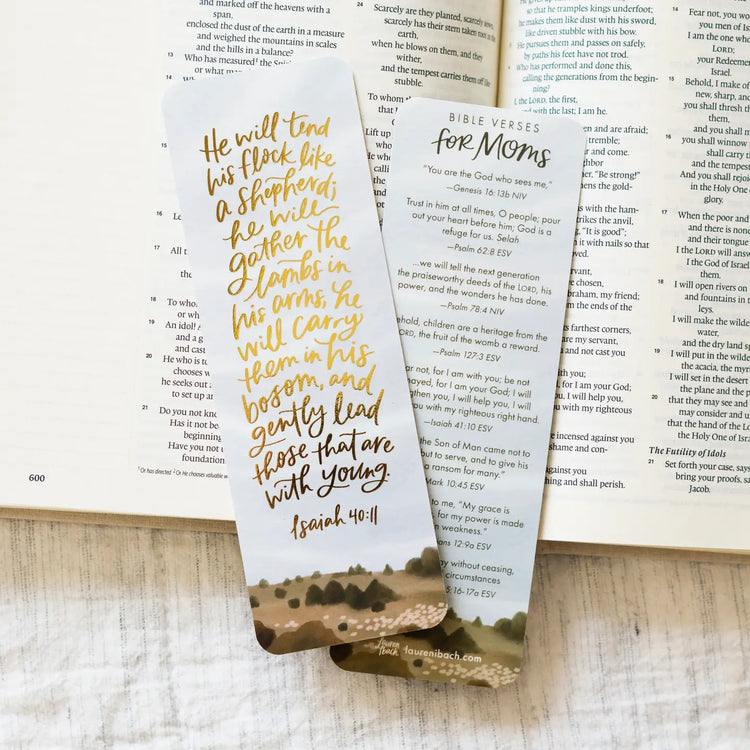 and marked off the heavens with a
span,
enclosed the dust of the earth in a measure
and weighed the mountains in scales
and the hills in a balance?
13 Who has measured¹ the
or what
14
15
16
17 All t
18 To who
19 An idol! A
and a g
cast
20 He who is to
choose
he seeks out
to set up a
21 Do you not know
Has it not be
beginning
Have you not u
foundation
¹ Or has directed ² Or He chooses valuable
600
24 Scarcely are they planted, scarcely
scarcely has their stem taken root in the
earth,
when he blows on them, and they
wither,
and the tempest carries them off like
stubble.
25 To whom
Lift up
He will tend
his flock like
a shepherd;
he will
gather the
lambs in
his arms; he
will carry
them in his
bosom, and
gently lead
those that are
with young.
Isaiah 40:11
BIBLE VERSES
for Moms
"You are the God who sees me,"
—Genesis 16:13b NIV
Trust in him at all times, O people; pour
out your heart before him; God is a
refuge for us. Selah
—Psalm 62:8 ESV
...we will tell the next generation
the praiseworthy deeds of the LORD, his
power, and the wonders he has done.
—Psalm 78:4 NIV
hold, children are a heritage from the
ORD, the fruit of the womb a reward.
—Psalm 127:3 ESV
ar not, for I am with you; be not
ayed, for I am your God; I will
gthen you, I will help you, I will
you with my righteous right hand.
—Isaiah 41:10 ESV
the Son of Man came not to
but to serve, and to give his
a ransom for many."
Mark 10:45 ESV
to me, "My grace is
, for my power is made
n weakness."
ans 12:9a ESV
y without ceasing,
circumstances
5:16-17a ESV
Lauren
Ibach
laurenibach.com
he gives up kings before him,
so that he tramples kings underfoot;
he makes them like dust with his sword,
like driven stubble with his bow.
3 He pursues them and passes on safely,
by paths his feet have not trod.
4 Who has performed and done this,
calling the generations from the begin-
ning?
I, the LORD, the first,
and with the last; I am he.
en and are afraid;
and come.
ghbor
er, "Be strong!"
hens the gold-
s with the ham-
trikes the anvil,
g, "It is good";
it with nails so that
e chosen,
braham, my friend;
m the ends of the
s farthest corners,
are my servant,
and not cast you
with you;
for I am your God;
l help you,
th my righteous
e incensed against you
unded;
hing and shall perish.
14 Fear not, you wor
you men of Is
I am the one who
LORD;
your Redeemer
Israel.
15 Behold, I make of
new, sharp, and
you shall thresh th
them,
and you shall m
16 you shall winnow
shall carry th
and the tempest
And you shall rejoi
in the Holy One o
glory.
17 When the poor and
and there is none
and their tongue
I the LORD will answ
I the God of Israe
them.
18 I will open rivers on
and fountains in t
leys.
I will make the wilde
water,
and the dry land sp
19 I will put in the wild
the acacia, the myrt
I will set in the desert
the plane and the p
20 that they may see and
may consider and u
that the hand of the L
the Holy One of Isra
The Futility of Idols
21 Set forth your case, say
bring your proofs, sa
Jacob.